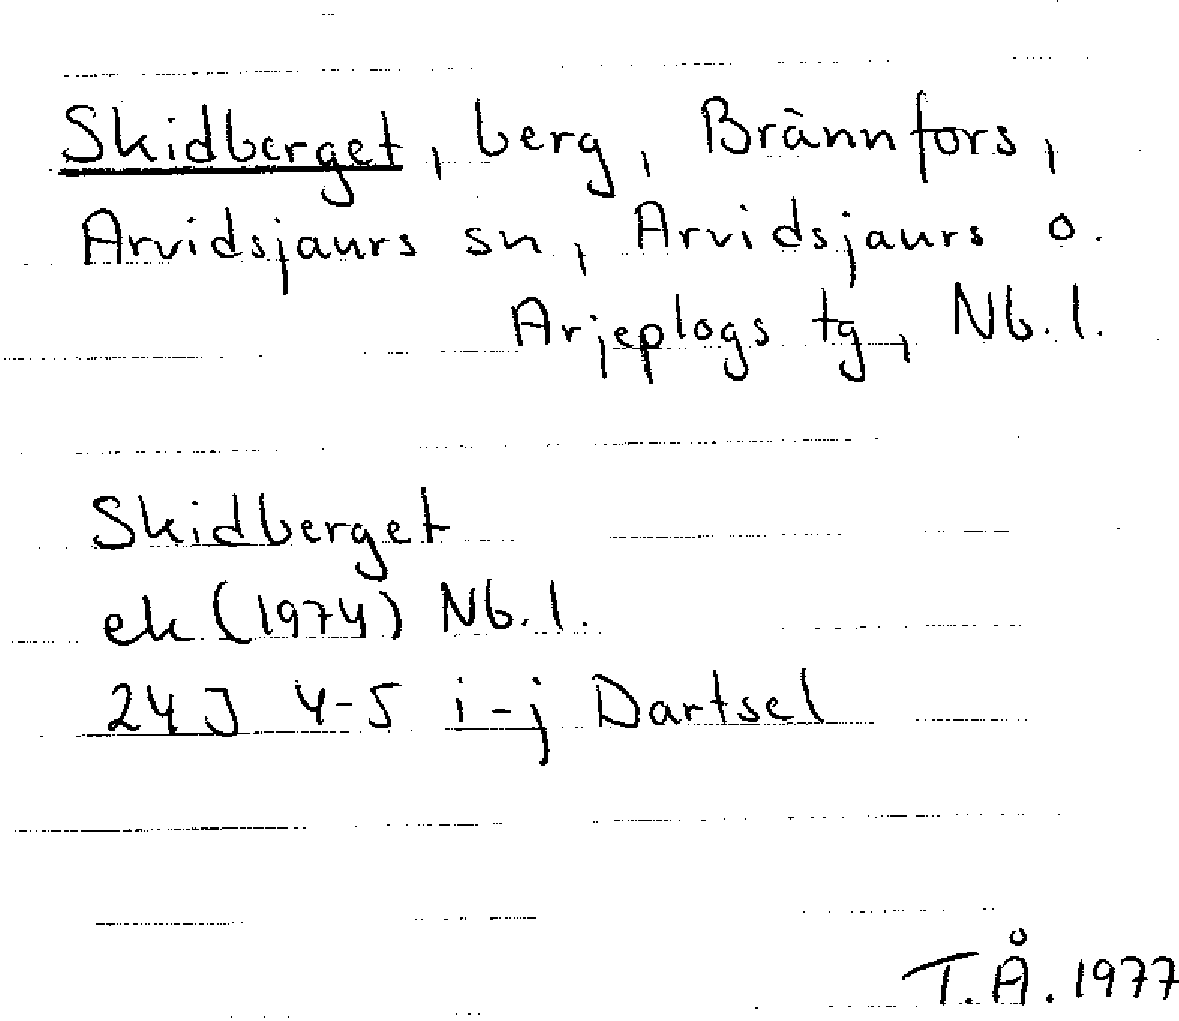 Skidberget, berg, Brännfors,
Arvidsjaurs sn, Arvidsjaurs o.
Arjeplogs tg, Nb. l.
Skidberget
ek (1974) Nb. l.
24J 4-5 i-j Dartsel
T.Å. 1977